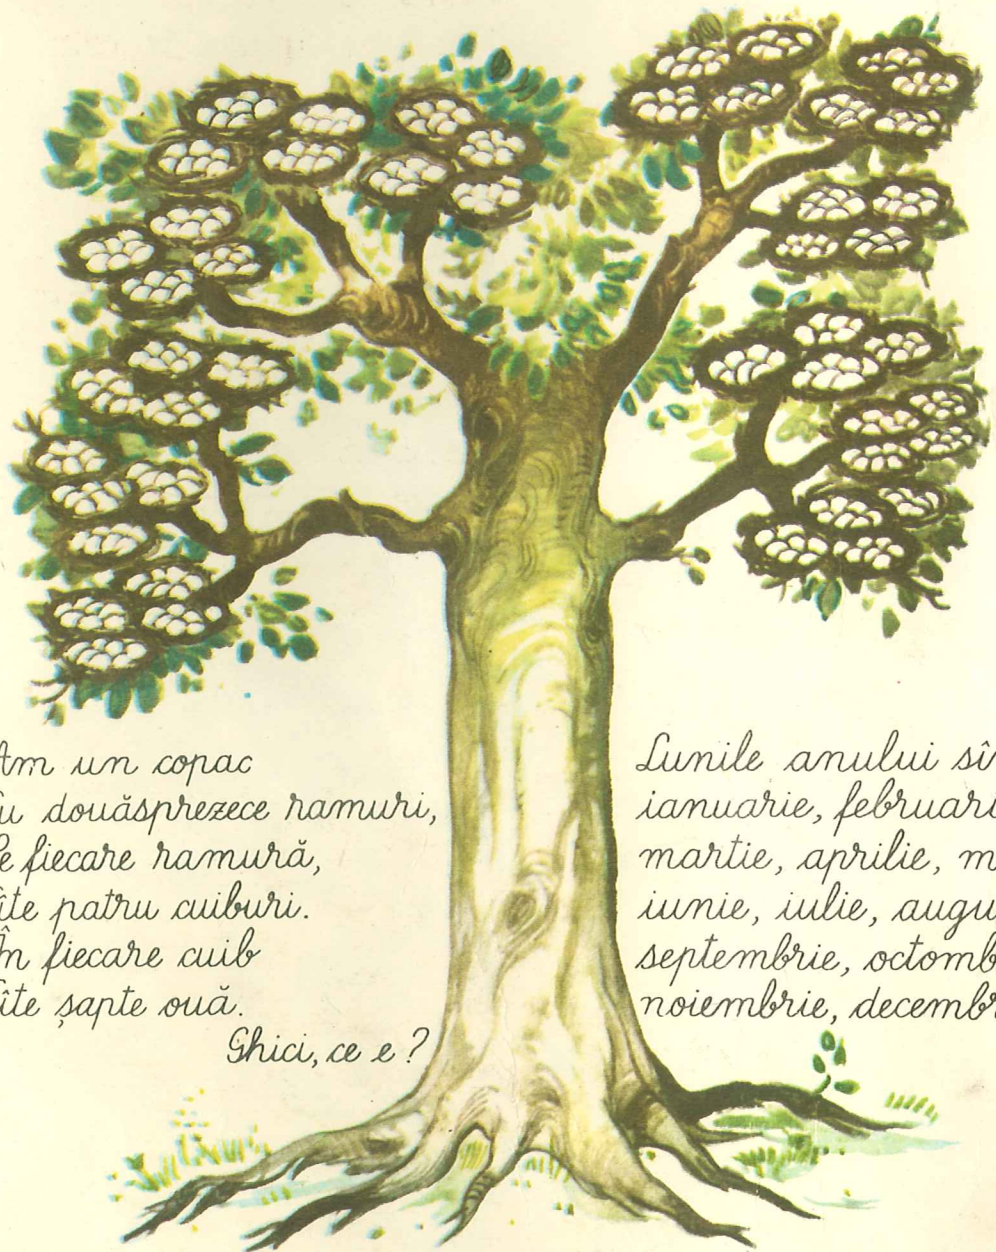 Am un copac
u douăsprezece ramuri,
e fiecare ramură,
îte patru cuiburi.
În fiecare cuib
îte șapte ouă.
Ghici, ce e?
Lunile anului sî
ianuarie, februari
martie, aprilie, m
iunie, iulie, augu
septembrie, octomb
noiembrie, decembr